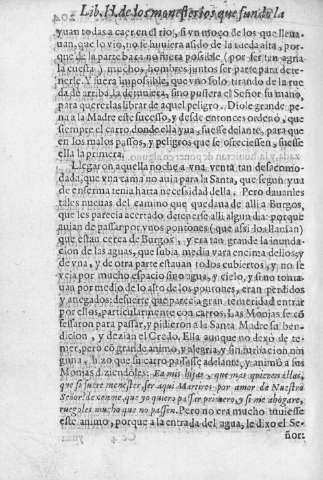 Lib. II. de los monesterios que fundò la
yuan todas a caer en el rio, si vn moço de los que lleua-
uan, que lo vio, no se huuiera asido de la rueda alta, por-
que de la parte baxa no fuera possible (por ser tan agria
la cuesta) muchos hombres juntos ser parte para dete-
nerle. Y fuera impossible, que vno solo tirando de la rue
da de arriba, la detuuiera, sino pusiera el Señor su mano,
para querer las librar de aquel peligro. Diole grande pe-
na a la Madre este sucesso, y desde entonces ordenó, que
siempre el carro donde ella yua, fuesse delante, para que
en los malos passos, y peligros que se ofreciessen, fuesse
ella la primera.
Llegaron aquella noche a vna venta tan desacomo-
dada, que vna cama no auia para la Santa, que segun yua
de enferma tenia harta necessidad della. Pero dauanles
tales nueuas del camino que quedaua de alli a Burgos,
que les parecia acertado detenerse alli algun dia: porque
auian de passar por vnos pontones (que assi los llaman)
que estan cerca de Burgos, y era tan grande la inunda-
cion de las aguas, que subia media vara encima dellos, y
de vna, y de otra parte estauan todos cubiertos, y no se
veìa por mucho espacio sino agua, y cielo, y sino toma-
uan por medio de lo alto de los pontones, eran perdidos
y anegados: de suerte que parecia gran temeridad entrar
por ellos, particularmente con carros. Las Monjas se co̅
fessaron para passar, y pidieron a la Santa Madre su ben-
dicion, y dezian el Credo. Ella aunque no dexó de te-
mer, pero có grande animo, y alegria, y sin turbacion nin
guna, hizo que su carro passasse adelante, y animò a las
Monjas diziendoles: Ea mis hijas, que mas quieren ellas,
que si fuere menester ser aqui Martires por amor de Nuestro
Señor? dexenme, que yo quiero passar primero, y si me ahogare,
ruegoles mucho que no passen. Pero no era mucho tuuiesse
este animo, porque a la entrada del agua, le dixo el Se-
ñor: